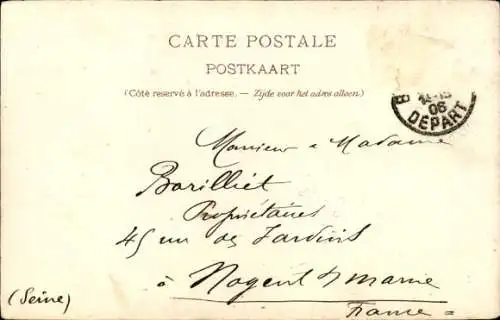 CARTE POSTALE
POSTKAART
(Côté reservé à l'adresse. — Zijde voor het adres alleen.)
06
DEPART
Monsieur & Madame
Barilliet
Propriétaires
45 rue des Jardins
à Nogent s/ marne
(Seine)
France =